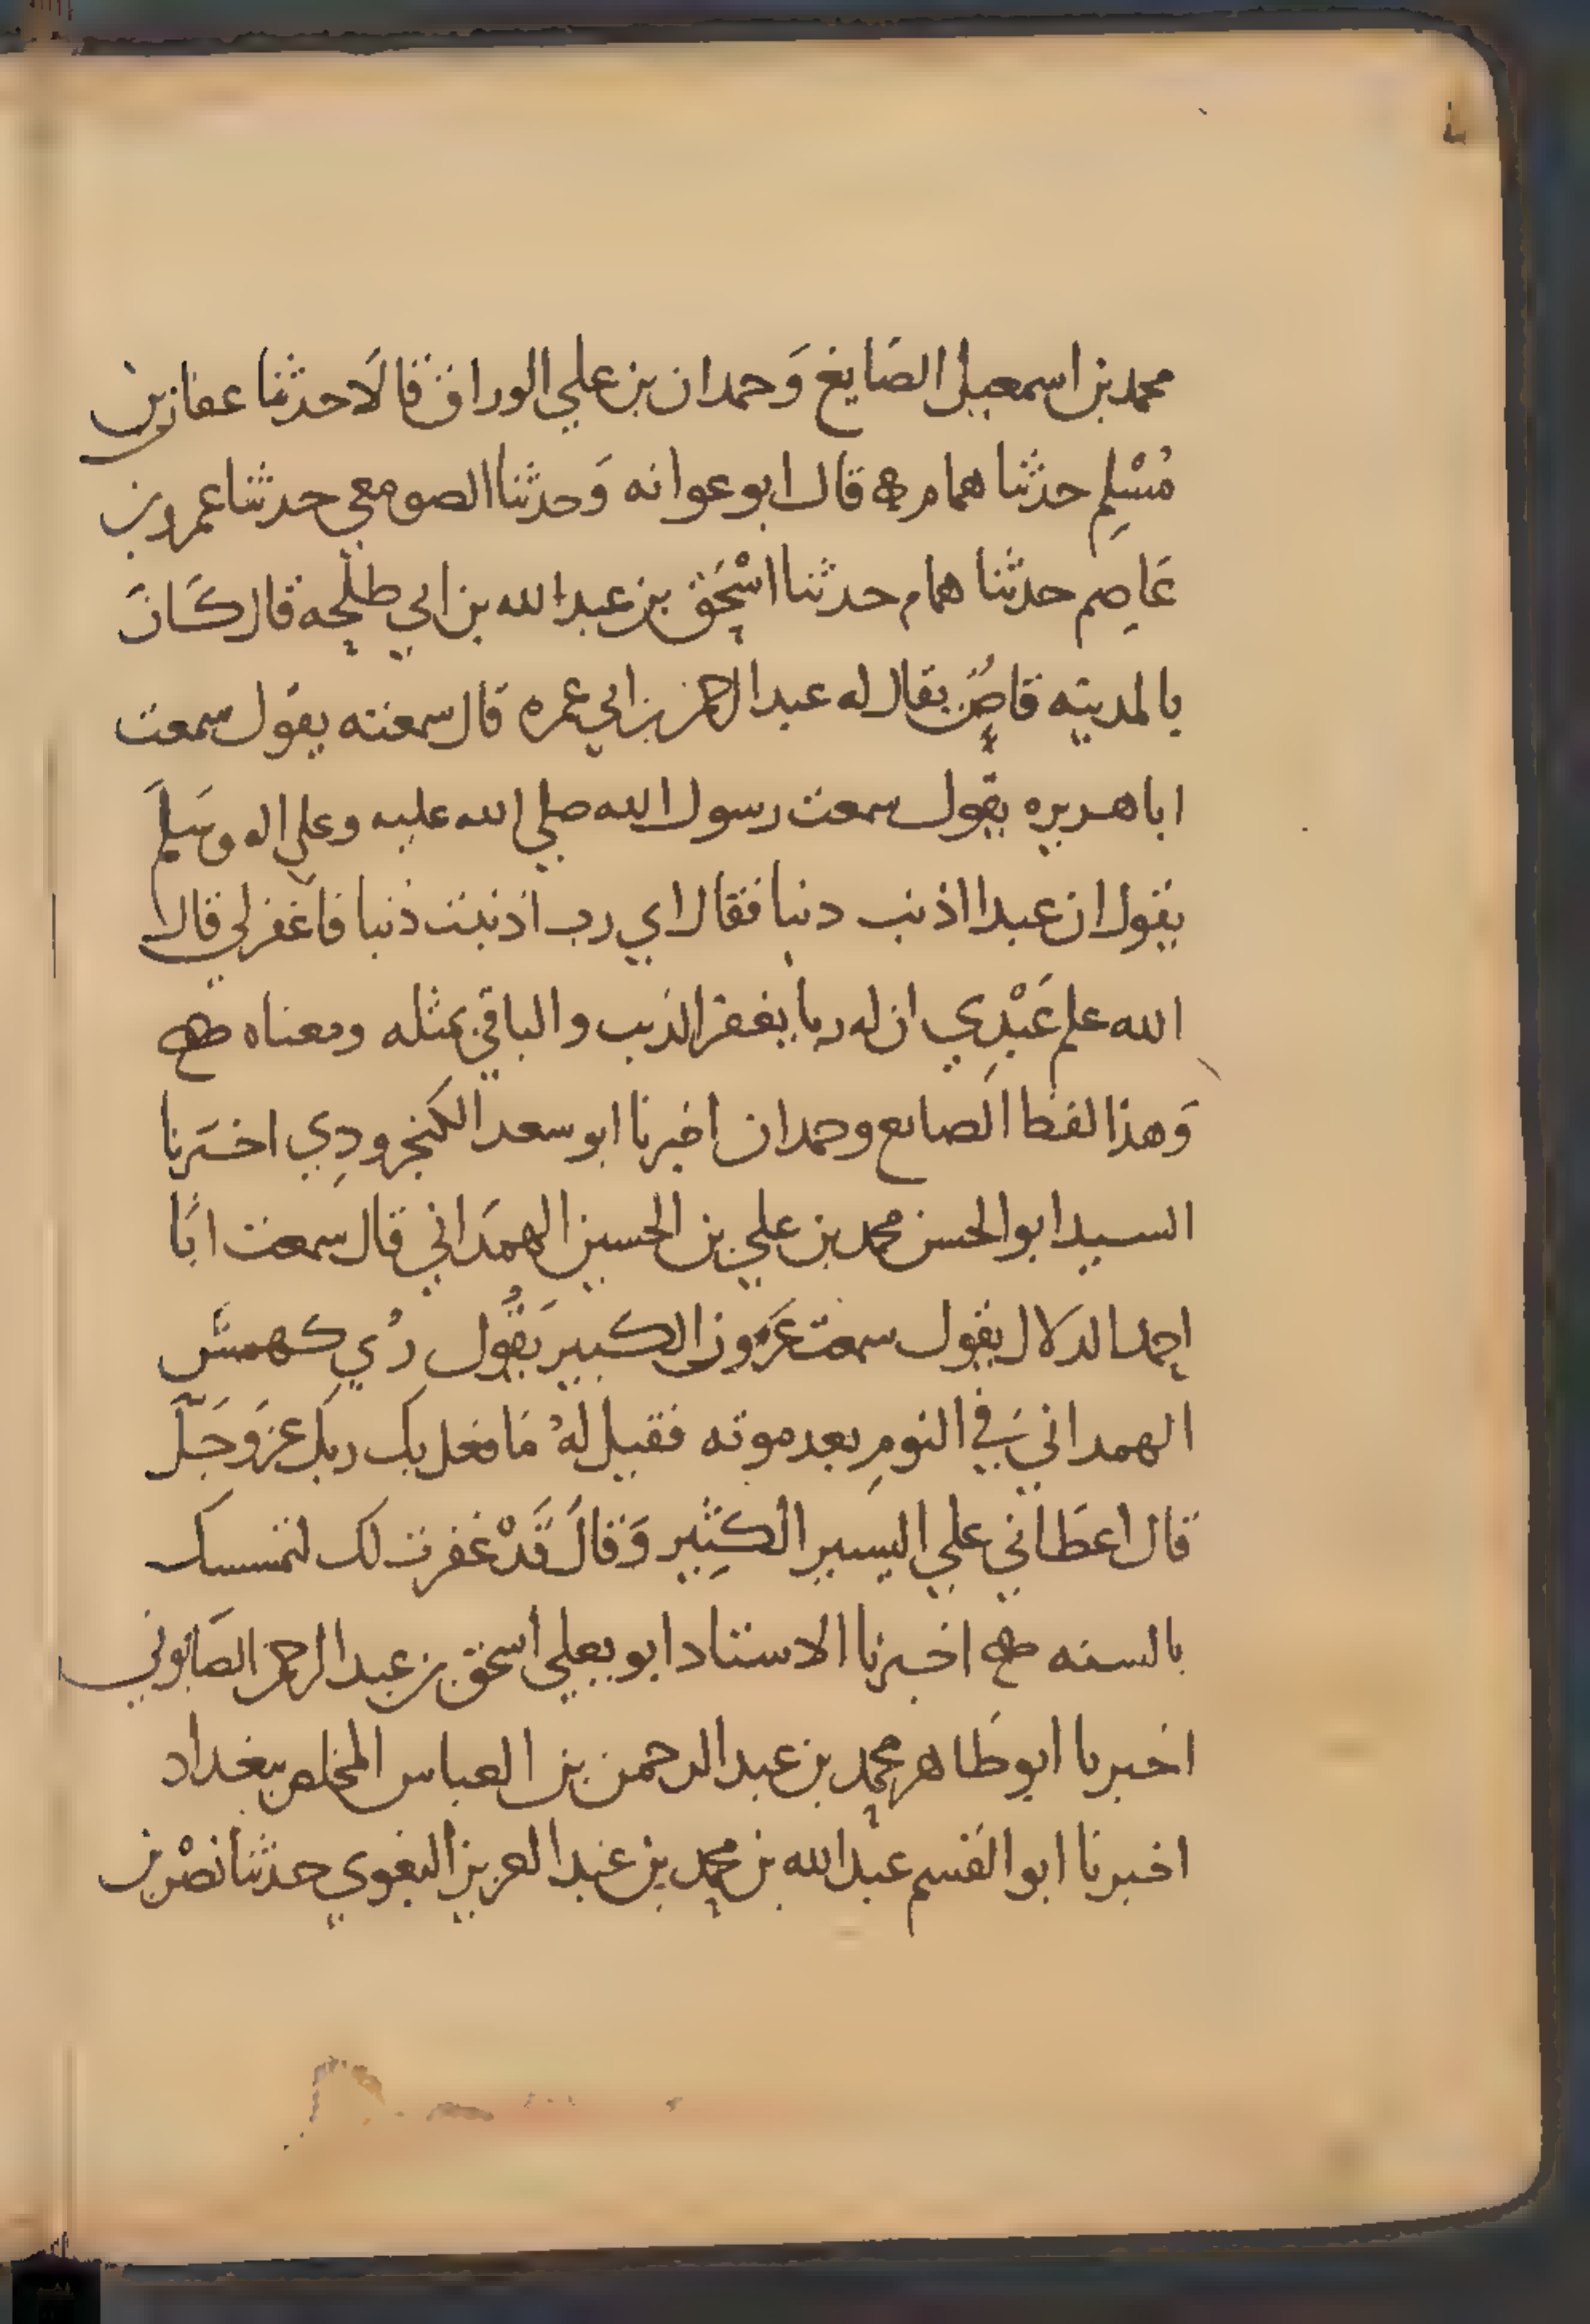 محمد بن اسمعيل الصَايغ وَحمدان بن علي الوراق قالَا حدثنا عفان بن
مُسْلِم حدثنا همام ه قال ابو عوانه وَحدثنا الصومعي حدثنا عمرو بن
عَاصِم حدثنا همام حدثنا اسْحَق بن عبد الله بن ابي طلْحه قال كَانَ
بالمدينه قاصٌ يقال له عبد الرحمن بن ابي عمره قال سمعته يقول سمعت
ابا هريره يقول سمعت رسول الله صلي الله عليه وعلي اله وسَلمَ
يقول ان عبدا اذنب دنبا فقال اي رب اذنبت ذنبا فاغفر لي قال
الله علم عَبْدِي ان له ربا يغفر الذنب والباقي بمثله ومعناه ه
وَهذا لفظ الصايع وحمدان اخبرنا ابو سعد الكنجرودِي اخبَرنا
السيد ابو الحسن محمد بن علي بن الحسين الهمَداني قال سمعت ابَا
احمد الدلال يقول سمعت الكبير يَقُول رُي كهمسَ
الهمداني في النومِ بعد موته فقيل لهُ مَا فعل بك ربك عز وَجَلّ
قال اعطَاني علي اليَسير الكثِير وَقالَ قَدْ غفرت لك لتمسك
بالسنه ه اخبرنا الاستاد ابو يعلي اسحق بن عبد الرحمن الصَابوني
اخبرنا ابو طَاهر محمد بن عبد الرحمن بن العباس المخلص ببغداد
اخبرنا ابو القسم عبد الله بن محمد بن عبد العزيز البغوي حدثنا نصْر بن